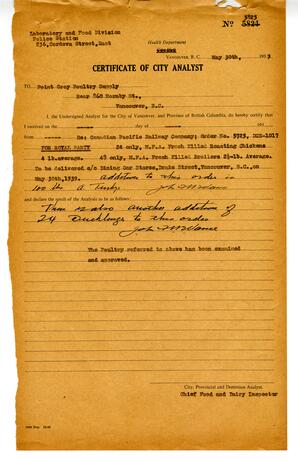 5725
No 5824
Laboratory and Food Division
Police Station
236, Cordova Street, East
Health Department
VANCOUVER, B. C. May 30th, 1939
CERTIFICATE OF CITY ANALYST
TO Point Grey Poultry Supply
Rear 848 Hornby St.,
Vancouver, B.C.
I, the Undersigned Analyst for the City of Vancouver, and Province of British Columbia, do hereby certify that
I received on the day of from
Re: Canadian Pacific Railway Company; Order No. 5725, DCS-1017
FOR ROYAL PARTY 24 only, M.F.A. Fresh Killed Roasting Chickens
4 lb. average. 48 only, M.F.A. Fresh Killed Broilers 2½-lb. Average.
To be delivered c/o Dining Car Stores, Drake Street, Vancouver, B.C., on
May 30th, 1939. addition to this order is
100 lbs A. Turkey John
and declare the result of the Analysis to be as follows:
There is also another addition of
24 Ducklings to this order
John
The Poultry referred to above has been examined
and approved.
City, Provincial and Dominion Analyst.
Chief Food and Dairy Inspector